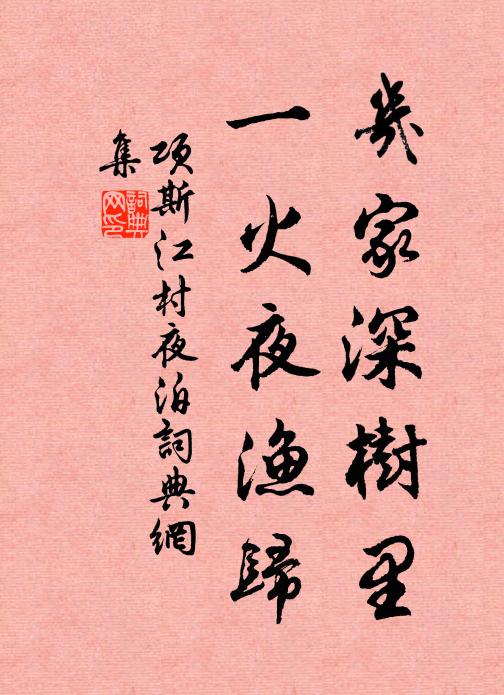 幾家深樹里
一火夜漁歸
項斯江村夜泊詞典網
集
詞典網印